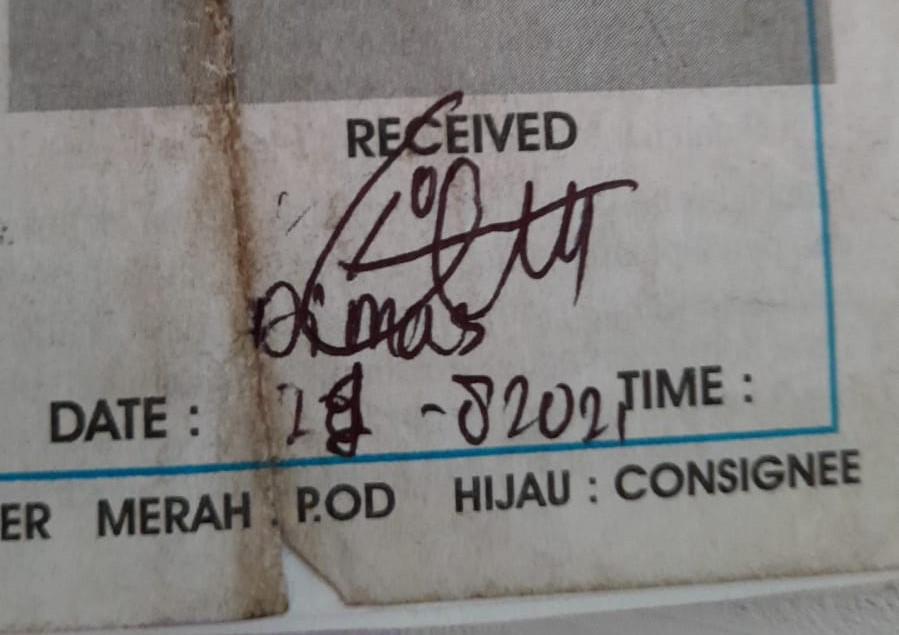 RECEIVED
Dimas
DATE : -82021 TIME :
ER MERAH : P.OD HIJAU : CONSIGNEE